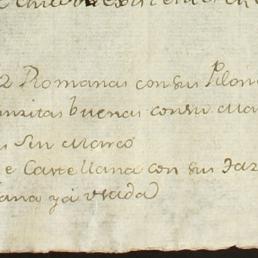 2 Romanas con sus Pilon
buenas con su Ma
Sin Marco
e Castellana con sus Jaz
ana yá usada